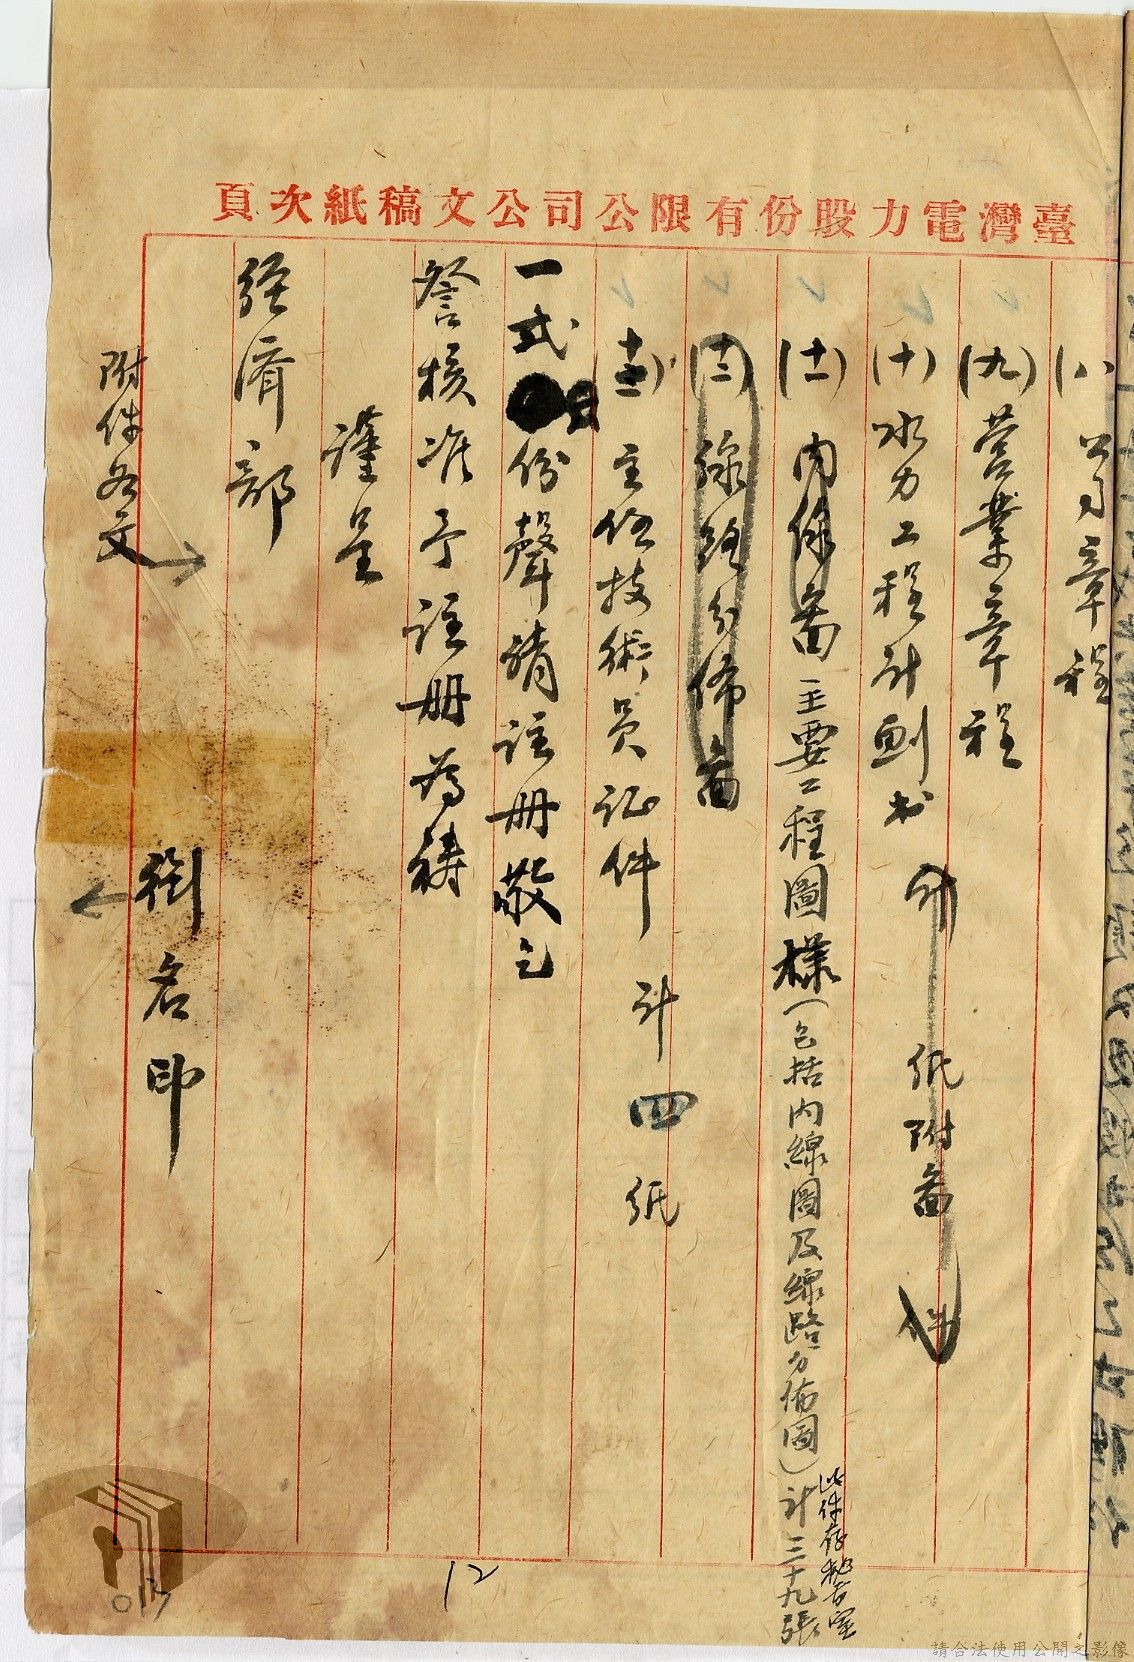 臺灣電力股份有限公司公文稿紙次頁
(八)公司章程
(九)營業章程
(十)水力工程計劃书 計 紙附圖 件
(十一)內線圖 主要工程圖樣(包括內線圖及線路分佈圖)計三十九張
此件存秘书室
(十二)線路分佈圖
(十三)主任技術員証件 計四紙
一式 份聲請註册敬乞
詧核准予註册為禱
謹呈
經濟部
附件各文
銜名印
12
013
請合法使用公開之影像